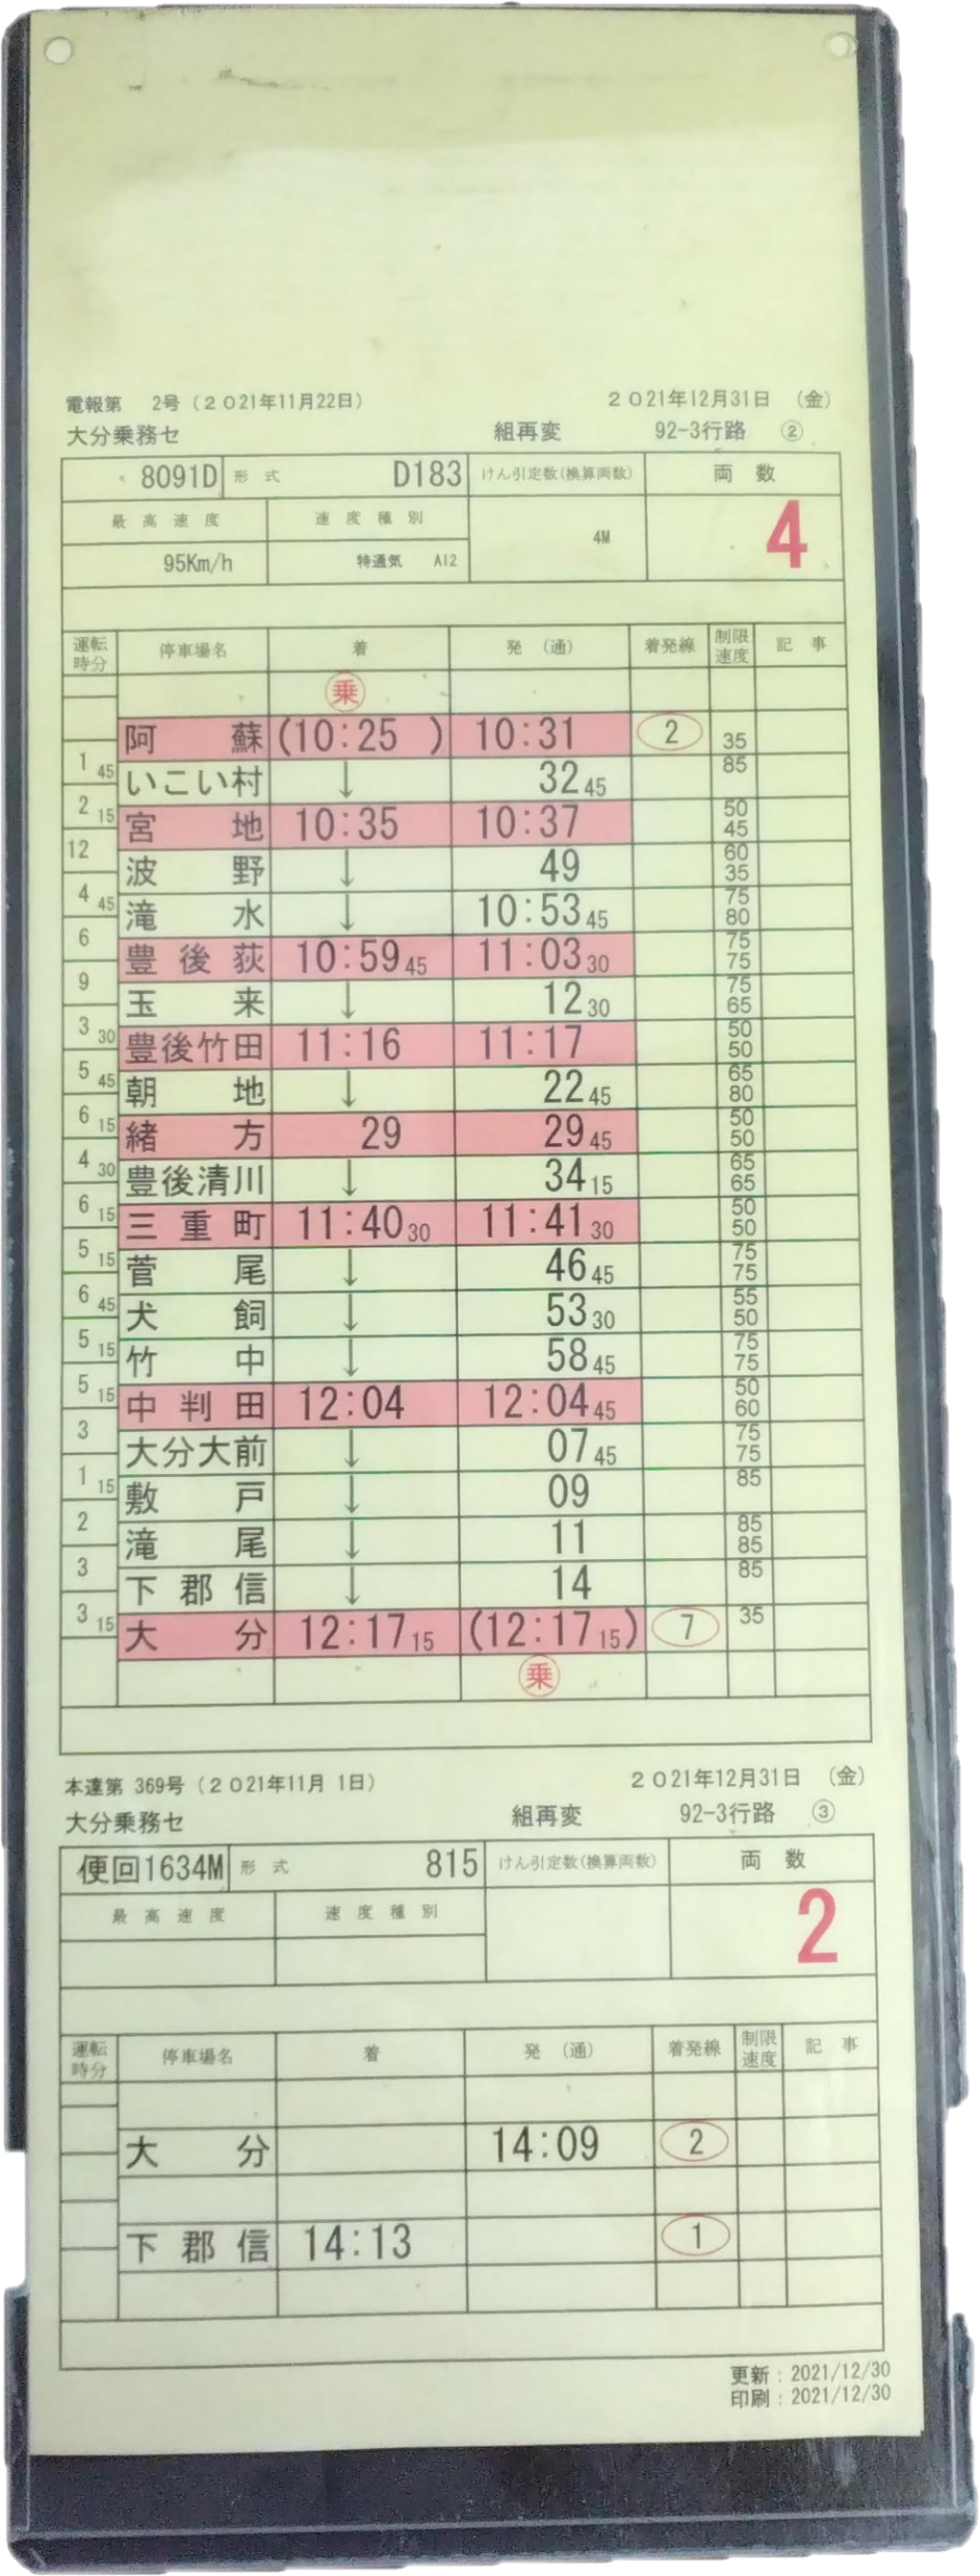 電報第 2号（２０21年11月22日） ２０21年12月31日 （金）
大分乗務セ 組再変 92-3行路 ②
8091D 形式 D183 けん引定数(換算両数) 両数
最高速度 速度種別 4M 4
95Km/h 特通気 A12
運転時分 停車場名 着 発（通） 着発線 制限速度 記事
乗
阿蘇 (10:25 ) 10:31 2 35
1 45 85
いこい村 ↓ 32 45
2 15 50
宮地 10:35 10:37 45
12 60
波野 ↓ 49 35
4 45 75
滝水 ↓ 10:53 45 80
6 75
豊後荻 10:59 45 11:03 30 75
9 75
玉来 ↓ 12 30 65
3 30 50
豊後竹田 11:16 11:17 50
5 45 65
朝地 ↓ 22 45 80
6 15 50
緒方 29 29 45 50
4 30 65
豊後清川 ↓ 34 15 65
6 15 50
三重町 11:40 30 11:41 30 50
5 15 75
菅尾 ↓ 46 45 75
6 45 55
犬飼 ↓ 53 30 50
5 15 75
竹中 ↓ 58 45 75
5 15 50
中判田 12:04 12:04 45 60
3 75
大分大前 ↓ 07 45 75
1 15 85
敷戸 ↓ 09
2 85
滝尾 ↓ 11 85
3 85
下郡信 ↓ 14
3 15 35
大分 12:17 15 (12:17 15) 7
乗
本達第 369号（２０21年11月 1日） ２０21年12月31日 （金）
大分乗務セ 組再変 92-3行路 ③
便回1634M 形式 815 けん引定数(換算両数) 両数
最高速度 速度種別 2
運転時分 停車場名 着 発（通） 着発線 制限速度 記事
大分 14:09 2
下郡信 14:13 1
更新：2021/12/30
印刷：2021/12/30